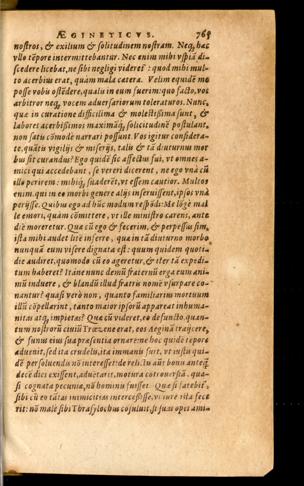 ÆGINETICVS. 765
nostros, & exilium & solitudinem nostram. Neq; hæc
vllo tēpore intermittebantur. Nec enim mihi vspiā di-
scedere licebat, ne sibi negligi videret: quod mihi mul-
to acerbius erat, quàm mala cætera. Velim equidē me
posse vobis ostēdere, qualis in eum fuerim: quo facto, vos
arbitror neq; vocem aduersariorum toleraturos. Nunc,
quæ in curatione difficilima & molestissima sunt, &
labores acerbissimos maximāq; solicitudinē postulant,
non satis cōmodè narrari possunt. Vos igitur considera-
te, quātis vigilijs & miserijs, talis & tā diuturnus mor
bus sit curandus? Ego quidē sic affectus fui, vt omnes a-
mici qui accedebant, se vereri dicerent, ne ego vnà cū
illo perirem: mihiq; suaderēt, vt essem cautior. Multos
enim, qui in eo morbi genere alijs inseruissent, ipsos vnà
perijsse. Quibus ego ad hūc modum respōdi: Me lōgè mal
le emori, quàm cōmittere, vt ille ministro carens, ante
diē moreretur. Qua cū ego & fecerim, & perpessus sim,
ista mihi audet litē inserre, quæ in tā diuturno morbo
nunquā eum visere dignata est: quum quidem quoti-
die audiret, quomodo cū eo ageretur, & iter tā expedi-
tum haberet? Itáne nunc demū fraternū erga eum ani-
mū induere, & blandū illud fratris nomē vsurpare co-
nantur? quasi verò non, quanto familiarius mortuum
illū cōpellarint, tanto maior ipsorū appareat inhuma-
nitas atq; impietas? Quæ cū videret, eo defuncto, quan-
tum nostrorū ciuiū Trœzene erat, eos Ægina traijcere,
& funus eius sua præsentia ornare: ne hoc quidē tēpore
aduenit, sed ita crudelis, ita immanis fuit, vt iustis qui-
dē persoluendis nō interesset: de relictis autē bonis anteq;
decē dies exissent, aduētarit, motura cōtrouersiā, qua-
si cognata pecuniæ, nō hominis fuisset. Quæ si fatebit',
sibi cū eo tātas inimicitias intercessisse, vt iure ista fece
rit: nō malè sibi Thrasylochus cōsuluit, si suas opes ami-